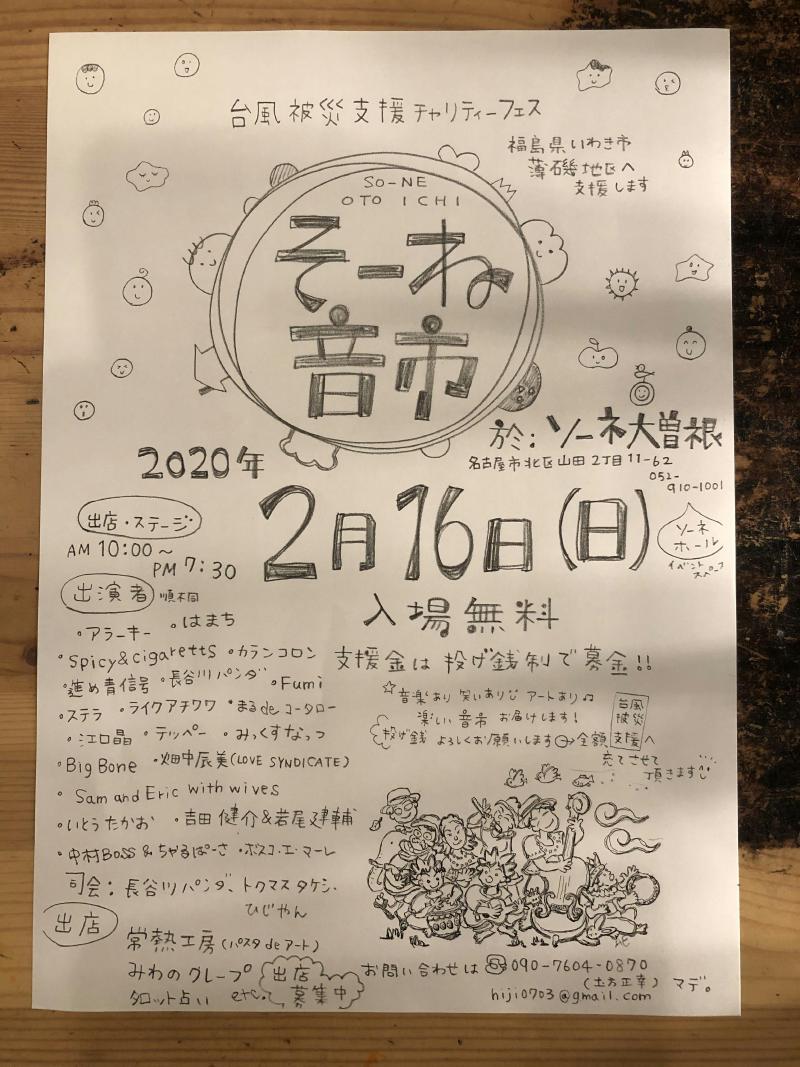 台風被災支援チャリティーフェス
福島県いわき市
薄磯地区へ
支援します
SO-NE
OTO ICHI
そーね
音市
於:ソーネ大曽根
名古屋市北区山田2丁目11-62
052-
910-1001
2020年
2月16日(日)
ソーネ
ホール
イベント
スペース
出店・ステージ
AM 10:00～
PM 7:30
入場無料
支援金は投げ銭制で募金!!
出演者 順不同
・アラーキー ・はまち
・Spicy&cigaretts ・カランコロン
・進め青信号 ・長谷川パンダ ・Fumi
・ステラ ・ライクアチワワ ・まるdeコータロー
・江口晶 ・テッペー ・みっくすなっつ
・Big Bone ・畑中辰美(LOVE SYNDICATE)
・Sam and Eric with wives
・いとうたかお ・吉田健介&若尾建輔
・中村BOSS&ちゃるぱーさ ・ボスコ・エ・マーレ
司会:長谷川パンダ、トクマスタケシ、
ひじやん
☆音楽あり 笑いあり アートあり♫
楽しい音市 お届けします!
投げ銭 よろしくお願いします→全額 台風被災支援へ
充てさせて
頂きます
出店
常熱工房(パスタdeアート)
みわのクレープ
タロット占い etc.
出店
募集中
お問い合わせは ☎090-7604-0870
(土方正幸) マデ。
hiji0703@gmail.com